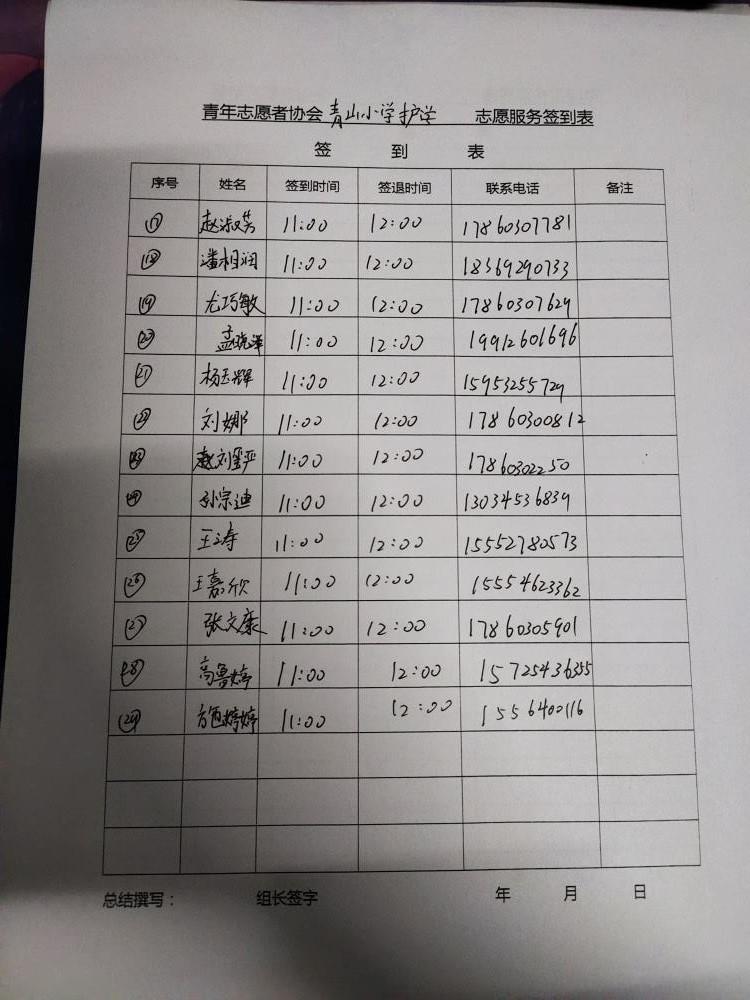 青年志愿者协会青山小学护学 志愿服务签到表
签 到 表
序号 姓名 签到时间 签退时间 联系电话 备注
⑰ 赵淑芳 11:00 12:00 17860307781
⑱ 潘相润 11:00 12:00 18369290733
⑲ 尤巧敏 11:00 12:00 17860307629
⑳ 孟晓泽 11:00 12:00 19912601696
㉑ 杨玉辉 11:00 12:00 15953255729
㉒ 刘娜 11:00 12:00 17860300812
㉓ 赵刘 11:00 12:00 17860302250
㉔ 孙宗迪 11:00 12:00 13034536839
㉕ 王涛 11:00 12:00 15552780573
㉖ 王嘉欣 11:00 12:00 15554623362
㉗ 张文康 11:00 12:00 17860305901
㉘ 高鲁婷 11:00 12:00 15725436355
㉙ 婷婷 11:00 12:00 1556400116
总结撰写： 组长签字 年 月 日